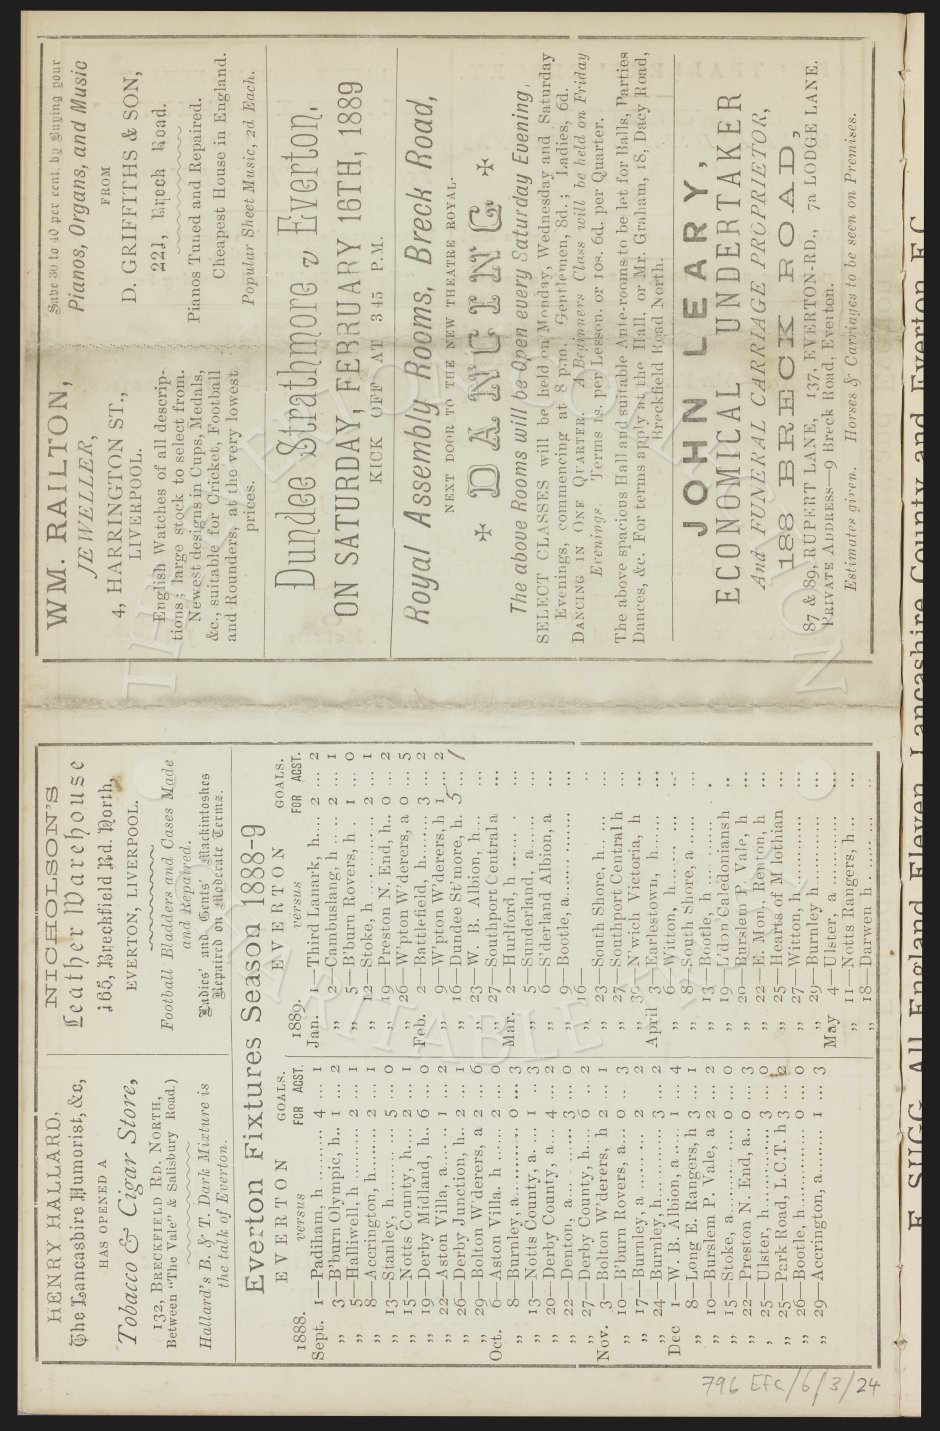 HENRY HALLARD,
The Lancashire Humorist, &c,
HAS OPENED A
Tobacco & Cigar Store,
132, BRECKFIELD RD. NORTH,
Between "The Vale" & Salisbury Road.)
Hallard's B. & T. Dark Mixture is
the talk of Everton.
NICHOLSON'S
Leather Warehouse
165, Breckfield Rd. North,
EVERTON, LIVERPOOL.
Football Bladders and Cases Made
and Repaired.
Ladies' and Gents' Mackintoshes
Repaired on Moderate Terms.
Everton Fixtures Season 1888-9
EVERTON GOALS.
1888. versus FOR AGST.
Sept. 1—Padiham, h .......... 4 ... 1
,, 3—B'burn Olympic, h... 1 ... 2
,, 5—Halliwell, h .......... 2 ... 1
,, 8—Accrington, h........ 2 ... 1
,, 13—Stanley, h............ 5 ... 0
,, 15—Notts County, h..... 2 ... 1
,, 19—Derby Midland, h... 6 ... 0
,, 22—Aston Villa, a...... 1 ... 2
,, 26—Derby Junction, h... 2 ... 1
,, 29—Bolton W'derers, a 2 ... 6
Oct. 6—Aston Villa. h ...... 2 ... 0
,, 8—Burnley, a........... 0 ... 3
,, 13—Notts County, a.... 1 ... 3
,, 20—Derby County, a... 4 ... 2
,, 22—Denton, a........... 3 ... 0
,, 27—Derby County, h... 6 ... 2
Nov. 3—Bolton W'derers, h 2 ... 1
,, 10—B'burn Rovers, a... 0 ... 3
,, 17—Burnley, a .......... 2 ... 2
,, 24—Burnley, h........... 3 ... 2
Dec 1—W. B. Albion, a ..... 1 ... 4
,, 8—Long E. Rangers, h 3 ... 1
,, 10—Burslem P. Vale, a 2 ... 2
,, 15—Stoke, a............. 0 ... 0
,, 22—Preston N. End, a.. 0 ... 3
, 25—Ulster, h............. 3 ... 0
,, 25—Park Road, L.C.T. h 3 ... 2
,, 26—Bootle, h............. 0 ... 0
,, 29—Accrington, a........ 1 ... 3
EVERTON GOALS.
1889. versus FOR AGST.
Jan. 1—Third Lanark, h.... 2 ... 2
,, 2—Cambuslang, h ...... 2 ... 1
,, 5—B'burn Rovers, h . 1 ... 0
,, 12—Stoke, h ............ 2 ... 1
,, 19—Preston N. End, h.. 0 ... 2
,, 26—W'pton W'derers, a 0 ... 5
Feb. 2—Battlefield, h........ 3 ... 2
,, 9—W'pton W'derers, h 1 ... 2
,, 16—Dundee St'more, h. 5 ... 1
,, 23—W. B. Albion, h... ...
,, 27—Southport Central a ...
Mar. 2—Hurlford, h ....... . ...
,, 5—Sunderland, a...... ...
,, 6—S'derland Albion, a ...
,, 9—Bootle, a............ ...
,, 16— ..
,, 23—South Shore, h..... ...
,, 27—Southport Central h ...
,, 30—N'wich Victoria, h ...
April 3—Earlestown, h....... ...
,, 6—Witton, h...... ... ...
,, 8—South Shore, a ..... ...
,, 13—Bootle, h ........... .
,, 19—L'don Caledonians h ..
,, 20—Burslem P. Vale, h ...
,, 22—E. Mon., Renton, h ...
,, 25—Hearts of M lothian ...
,, 27—Witton, h............ ...
,, 29—Burnley h ........... ...
May 4—Ulster, a ............ ...
,, 11—Notts Rangers, h... ...
,, 18—Darwen h ............ ...
,,
WM. RAILTON,
JEWELLER,
4, HARRINGTON ST.,
LIVERPOOL.
English Watches of all descrip-
tions; large stock to select from.
Newest designs in Cups, Medals,
&c., suitable for Cricket, Football
and Rounders, at the very lowest
prices.
Save 30 to 40 per cent. by Buying your
Pianos, Organs, and Music
FROM
D. GRIFFITHS & SON,
221, Breck Road.
Pianos Tuned and Repaired.
Cheapest House in England.
Popular Sheet Music, 2d Each.
Dundee Strathmore v Everton,
ON SATURDAY, FEBRUARY 16TH, 1889
KICK OFF AT 3 45 P.M.
Royal Assembly Rooms, Breck Road,
NEXT DOOR TO THE NEW THEATRE ROYAL.
DANCING
The above Rooms will be Open every Saturday Evening,
SELECT CLASSES will be held on Monday, Wednesday and Saturday
Evenings, commencing at 8 p.m. Gentlemen, 8d.; Ladies, 6d.
DANCING IN ONE QUARTER. A Beginners Class will be held on Friday
Evenings Terms 1s. per Lesson. or 10s. 6d. per Quarter.
The above spacious Hall and suitable Ante-rooms to be let for Balls, Parties
Dances, &c. For terms apply at the Hall, or Mr. Graham, 18, Dacy Road,
Breckfield Road North.
JOHN LEARY,
ECONOMICAL UNDERTAKER
And FUNERAL CARRIAGE PROPRIETOR,
188 BRECK ROAD,
87 & 89, RUPERT LANE, 137, EVERTON-RD., 7a LODGE LANE.
PRIVATE ADDRESS—9 Breck Road, Everton.
Estimates given. Horses & Carriages to be seen on Premises.
796 EFC/6/3/24